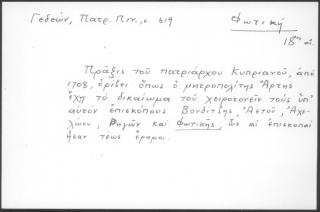 Γεδεών, Πατρ. Πιν., σ. 619
Φωτική
18ος αἰ.
Πρᾶξις τοῦ πατριάρχου Κυπριανοῦ, ἀπὸ
1708, ὁρίζει ὅπως ὁ μητροπολίτης Ἄρτης
ἔχῃ τὸ δικαίωμα τοῦ χειροτονεῖν τοὺς ὑπ'
αὐτὸν ἐπισκόπους Βονδίτζης, Ἀετοῦ, Ἀχε-
λώου, Ῥηγῶν καὶ Φωτικῆς, ὧν αἱ ἐπισκοπαὶ
ἦσαν τέως ἔρημοι.